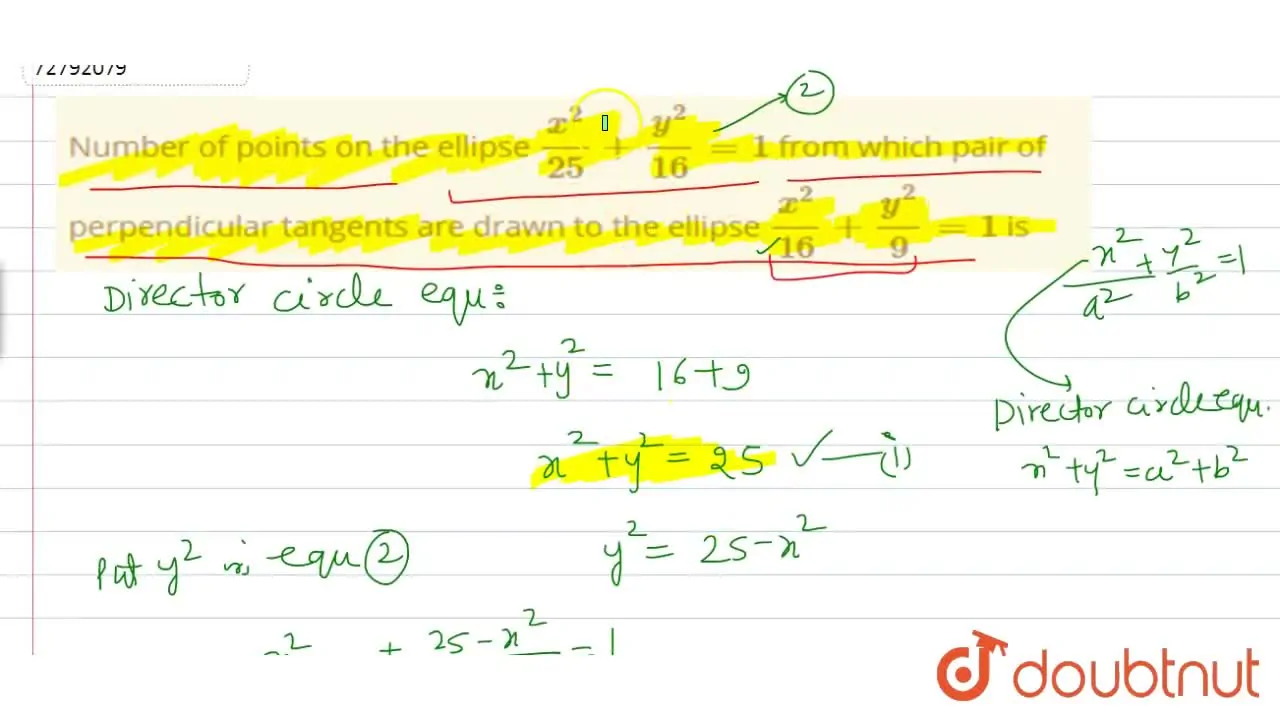 72792079
Number of points on the ellipse x²/25 + y²/16 = 1 from which pair of
perpendicular tangents are drawn to the ellipse x²/16 + y²/9 = 1 is
②
Director circle equ:
x²/a² + y²/b² = 1
x² + y² = 16+9
Director circle equ.
x² + y² = 25 ✓—(1)
x² + y² = a² + b²
y² = 25 - x²
Put y² in equ ②
x² + 25 - x² = 1
doubtnut